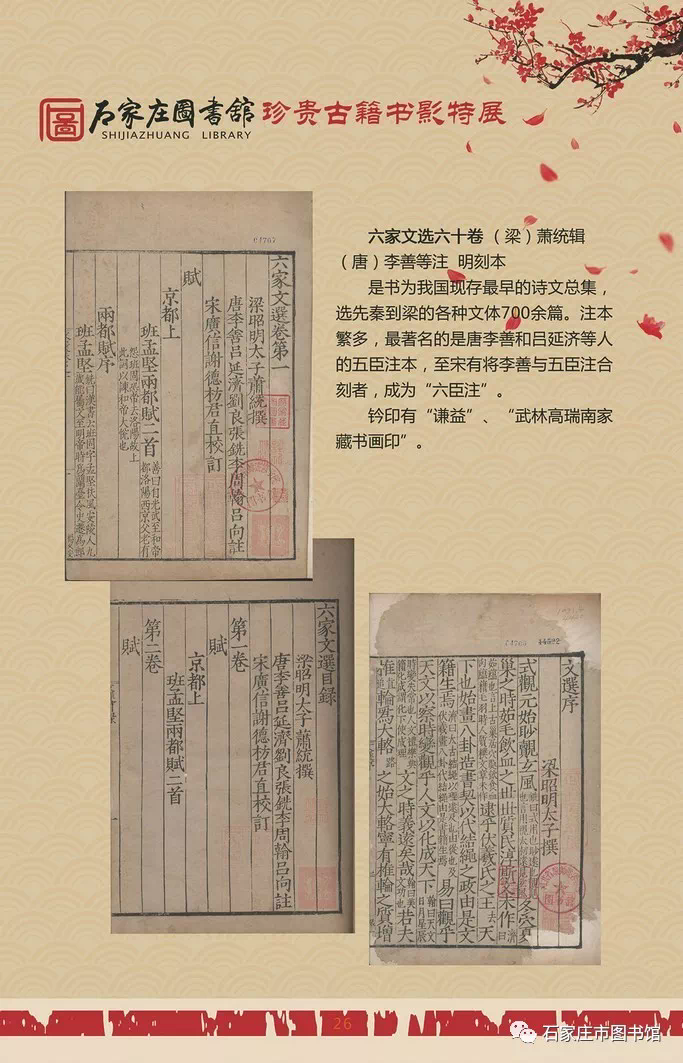 石家庄圖書舘 珍贵古籍书影特展
SHIJIAZHUANG LIBRARY
六家文选六十卷 （梁）萧统辑
（唐）李善等注 明刻本
是书为我国现存最早的诗文总集，
选先秦到梁的各种文体700余篇。注本
繁多，最著名的是唐李善和吕延济等人
的五臣注本，至宋有将李善与五臣注合
刻者，成为“六臣注”。
钤印有“谦益”、“武林高瑞南家
藏书画印”。
六家文選卷第一
梁昭明太子蕭統撰
唐李善呂延濟劉良張銑李周翰呂向註
宋廣信謝德枋君直校訂
賦
京都上
班孟堅兩都賦二首
兩都賦序
班孟堅
六家文選目録
梁昭明太子蕭統撰
唐李善呂延濟劉良張銑李周翰呂向註
宋廣信謝德枋君直校訂
第一卷
賦
京都上
班孟堅兩都賦二首
第二卷
賦
文選序
梁昭明太子撰
式觀元始眇覿玄風 冬穴夏
巢之時茹毛飲血之世世質民淳斯文未作
逮乎伏羲氏之王 天
下也始畫八卦造書契以代結繩之政由是文
籍生焉 易曰觀乎
天文以察時變觀乎人文以化成天下
文之時義遠矣哉 若夫
椎輪為大輅 之始大輅寧有椎輪之質增
26
石家庄市图书馆